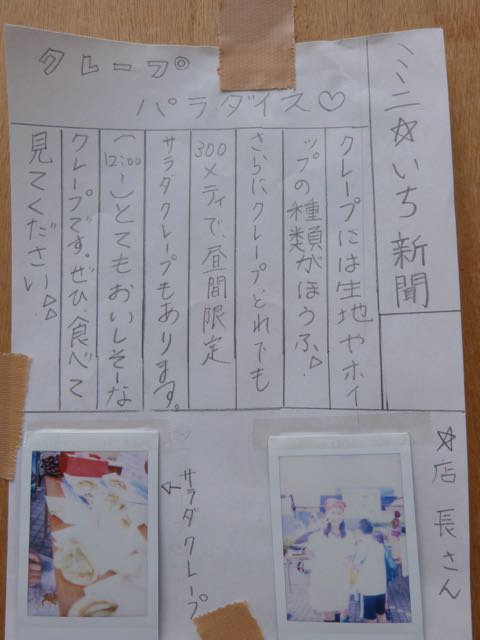 ミニ☆いち新聞
クレープ◎
パラダイス♡
クレープには生地やホイ
ップの種類がほうふ♪
さらにクレープ、どれでも
300メティで、昼間限定
サラダクレープもあります。
(12:00〜)とてもおいしそーな
クレープです。ぜひ食べて
見てください♪♪
☆店長さん
←サラダクレープ